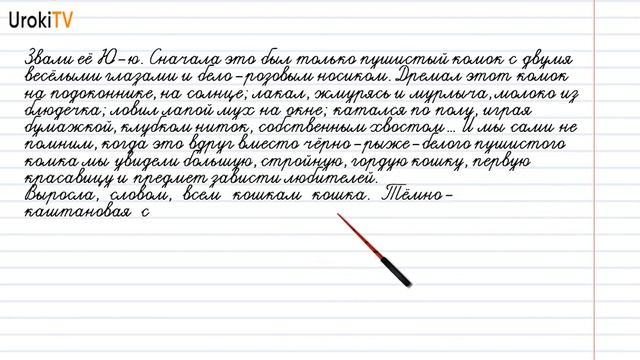 UrokiTV
Звали её Ю-ю. Сначала это был только пушистый комок с двумя
весёлыми глазами и бело-розовым носиком. Дремал этот комок
на подоконнике, на солнце; лакал, жмурясь и мурлыча, молоко из
блюдечка; ловил лапой мух на окне; катался по полу, играя
бумажкой, клубком ниток, собственным хвостом... И мы сами не
помним, когда это вдруг вместо чёрно-рыже-белого пушистого
комка мы увидели большую, стройную, гордую кошку, первую
красавицу и предмет зависти любителей.
Выросла, словом, всем кошкам кошка. Тёмно-
каштановая с